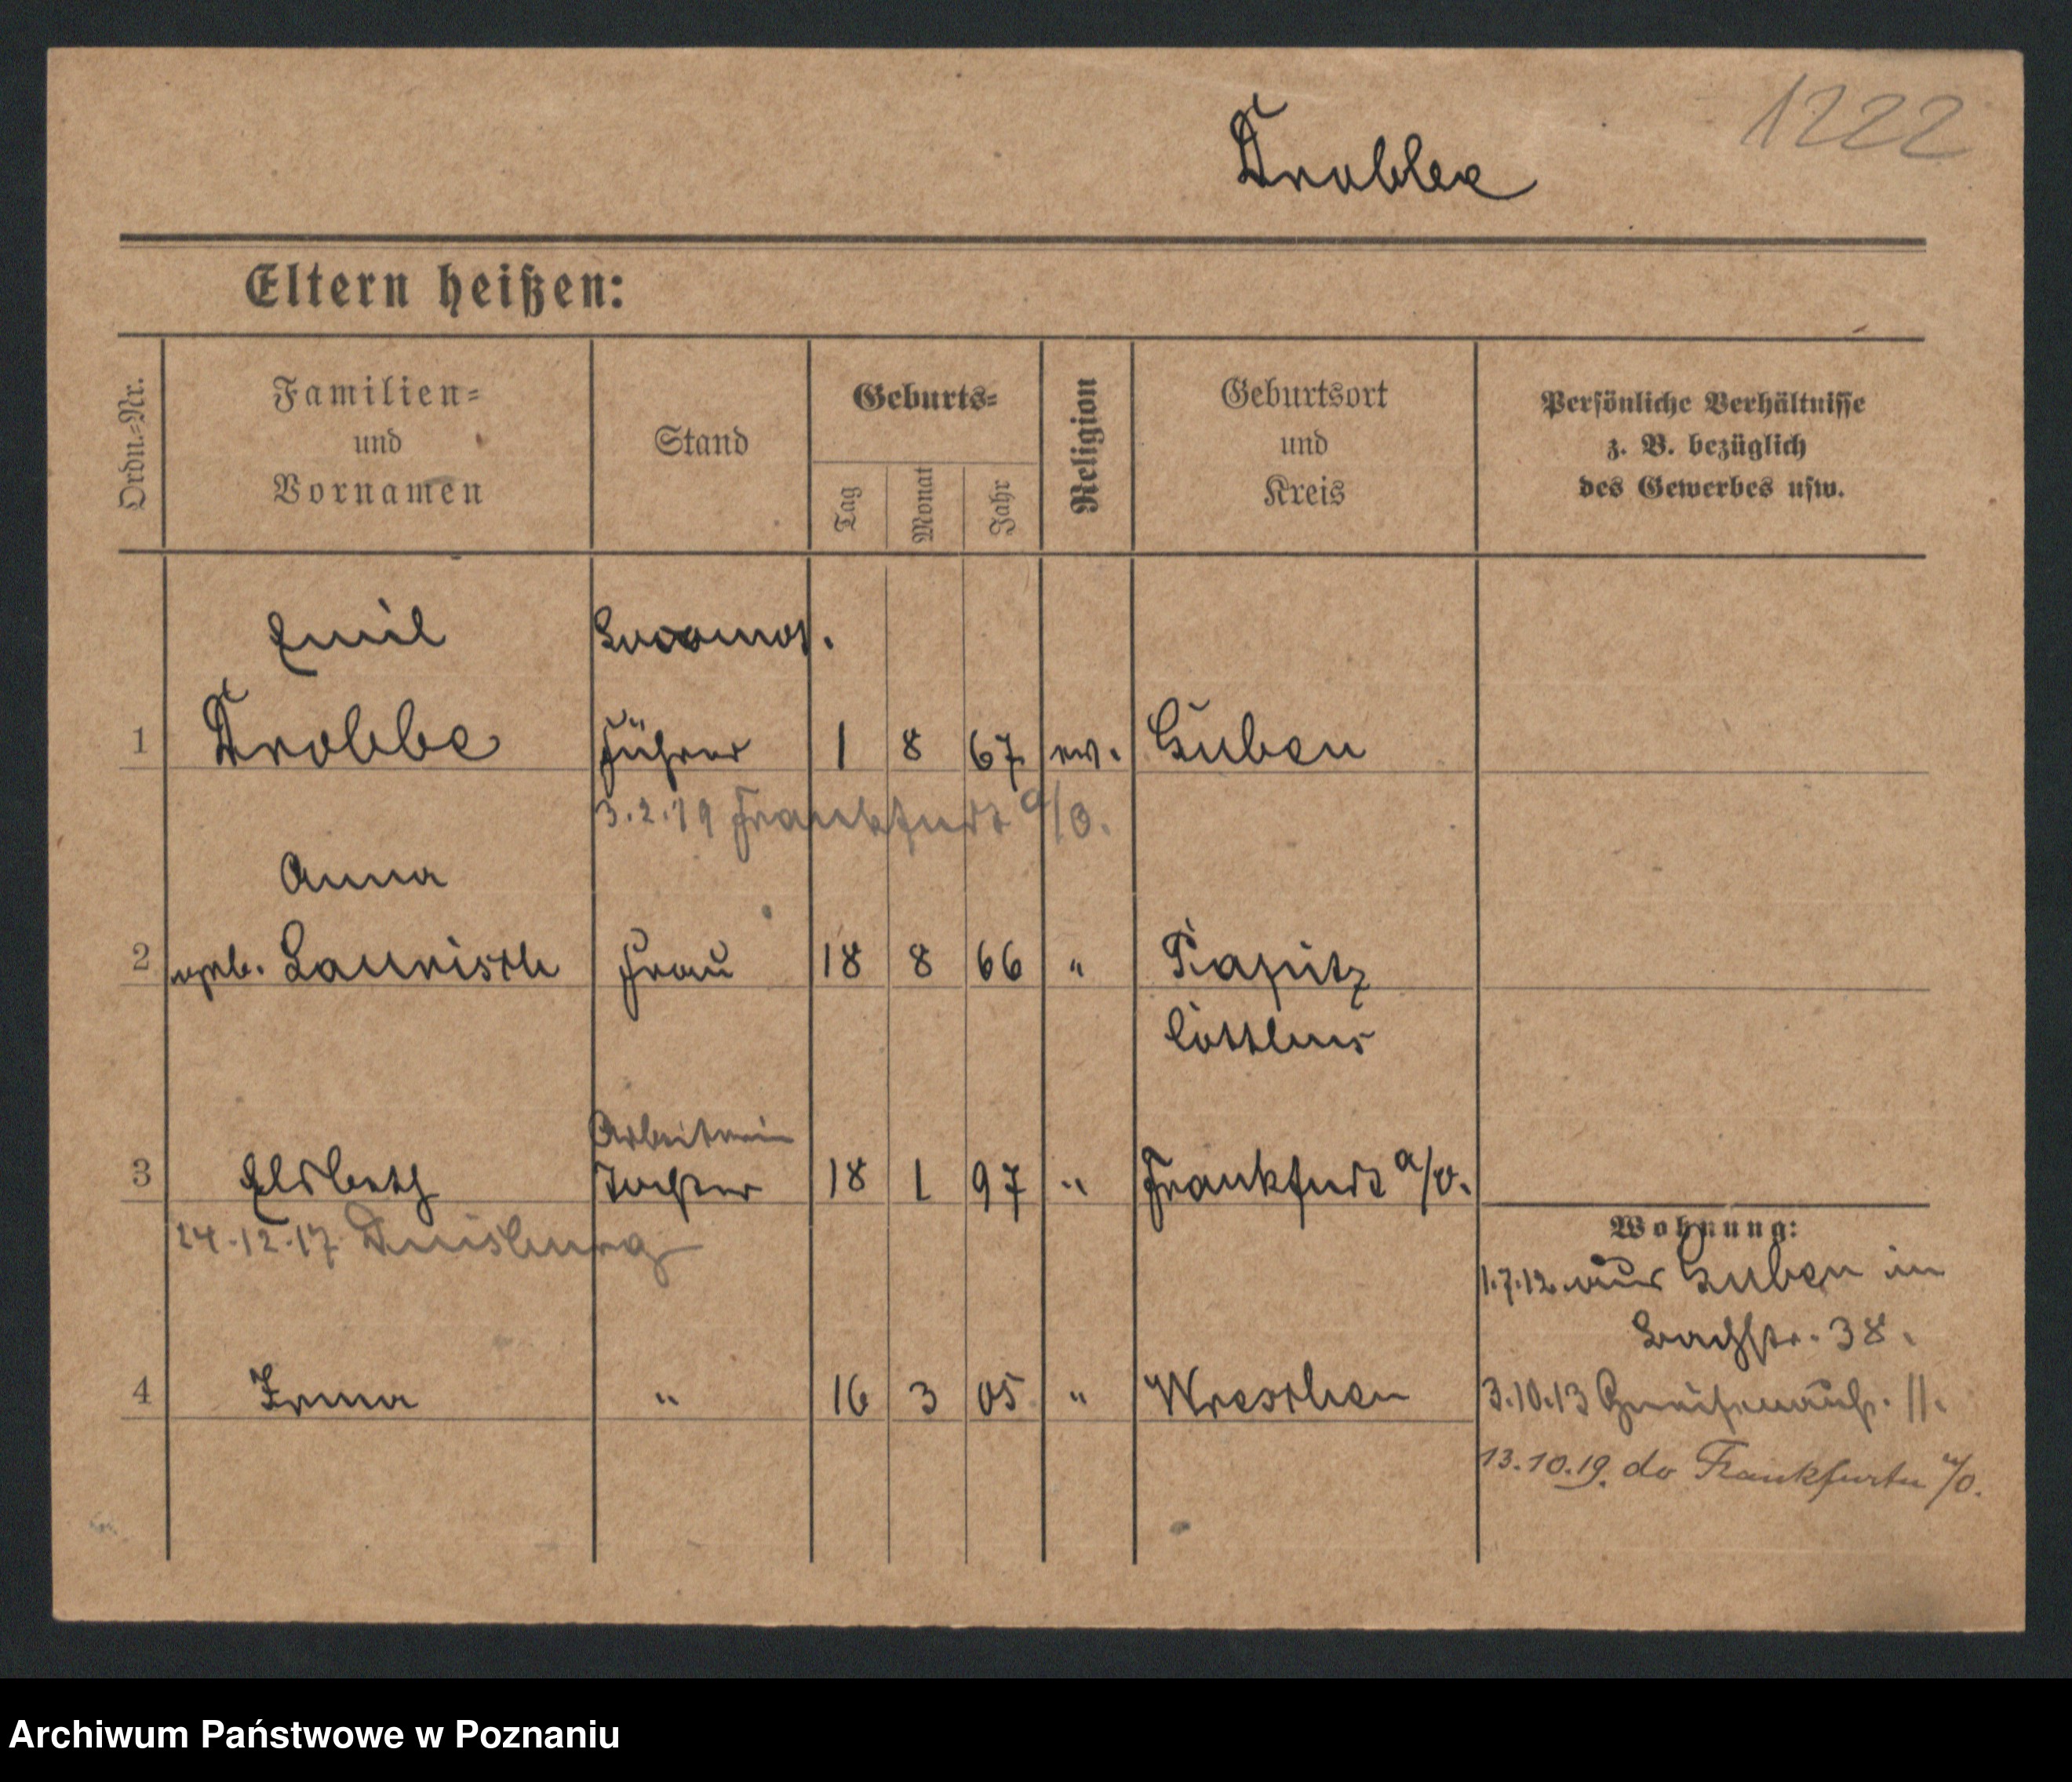 1222
Drobbe
Eltern heißen:
Ordn.=Nr.
Familien=
und
Vornamen
Stand
Geburts=
Tag
Monat
Jahr
Religion
Geburtsort
und
Kreis
Persönliche Verhältnisse
z. B. bezüglich
des Gewerbes usw.
Emil Locomot.
1 Drobbe Führer 1 8 67 ev. Guben
3.2.19 Frankfurt a/O.
Anna
2 geb. Laurisch Frau 18 8 66 " Papitz
Cottbus
Arbeiterin
3 Elsbeth Tochter 18 1 97 " Frankfurt a/O.
24.12.17 Duisburg
Wohnung:
1.7.12 aus Guben in
Bachstr. 38.
4 Irma " 16 3 05 " Wreschen 3.10.13 Gneisenaustr. 11.
13.10.19. do Frankfurtu a/O.
Archiwum Państwowe w Poznaniu